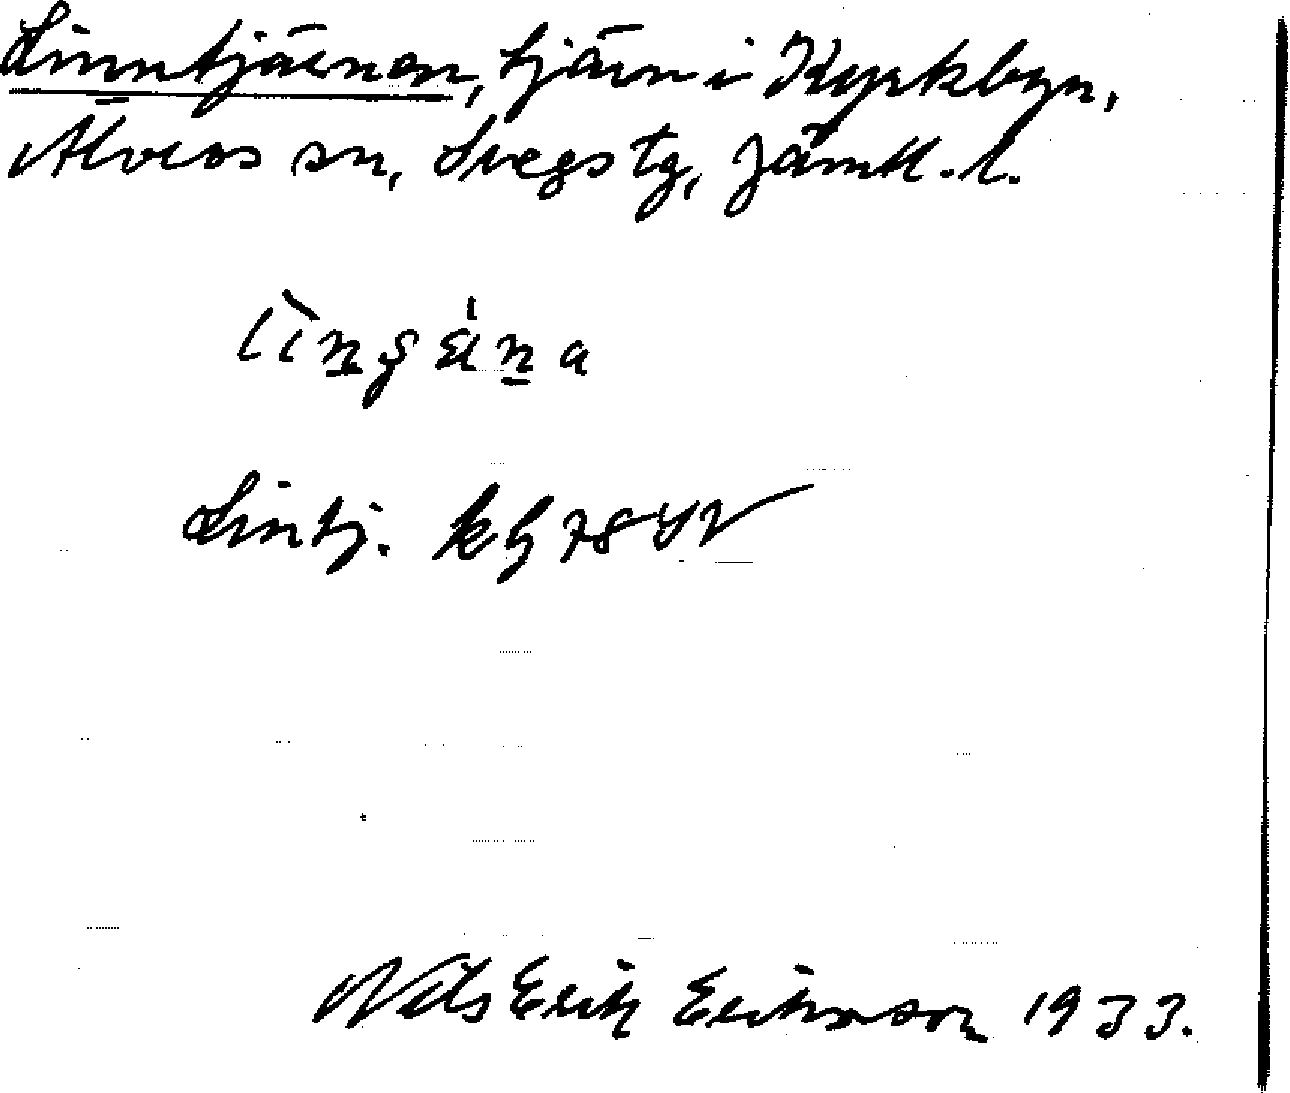 Linntjärnen, tjärn i Kyrkbyn,
Älvros sn, Svegs tg, Jämtl. l.
Lintj. kh 78 YV
Nils Erik Eriksson 1933.